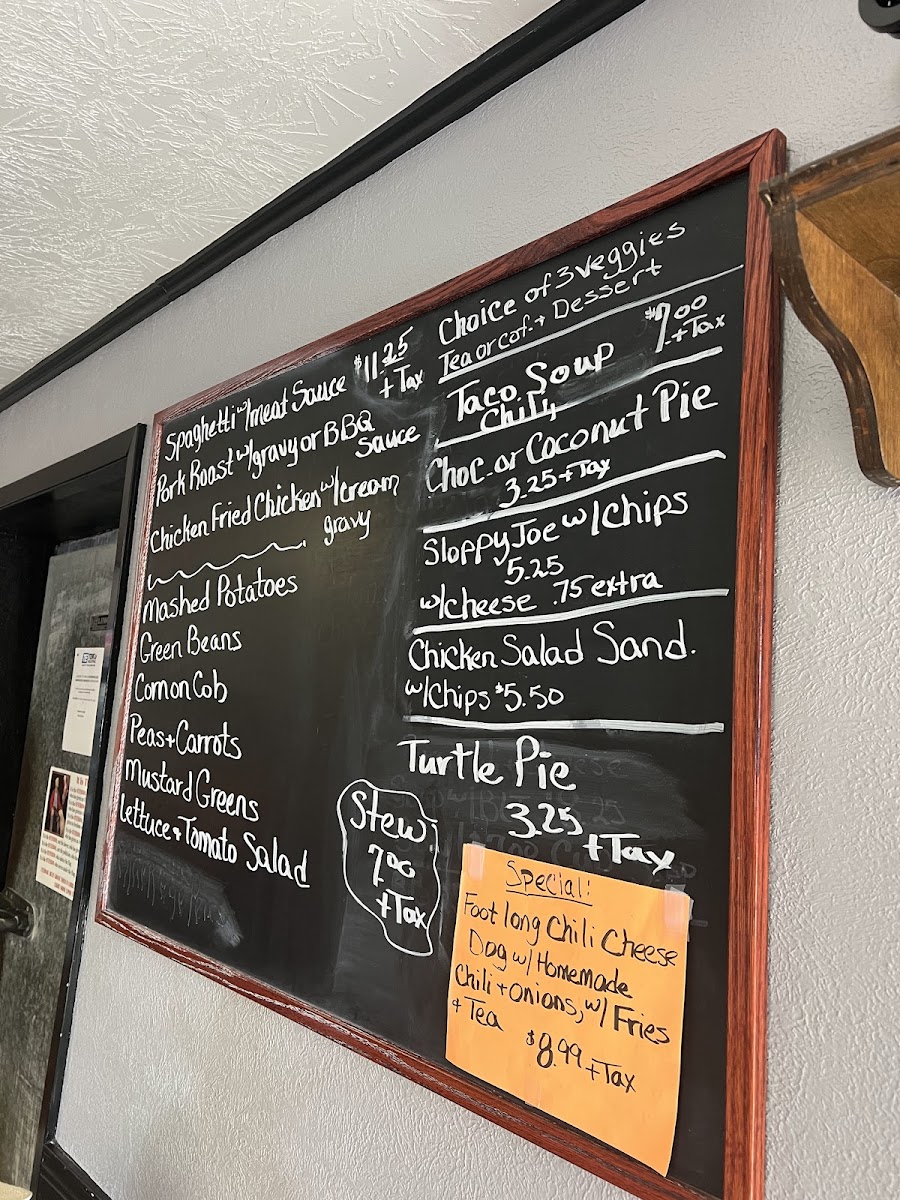 Spaghetti w/meat Sauce $11.25
+ Tax
Pork Roast w/gravy or BBQ
Sauce
Chicken Fried Chicken w/cream
gravy
Mashed Potatoes
Green Beans
Corn on Cob
Peas + Carrots
Mustard Greens
Lettuce + Tomato Salad
Choice of 3 veggies
Tea or cof. + Dessert
Taco Soup $7.00
+ Tax
Chili
Choc. or Coconut Pie
3.25 + Tax
Sloppy Joe w/Chips
5.25
w/cheese .75 extra
Chicken Salad Sand.
w/Chips $5.50
Turtle Pie
3.25
+ Tax
Stew
7.00
+ Tax
Special!
Foot long Chili Cheese
Dog w/ Homemade
Chili + onions, w/ Fries
+ Tea
$8.99 + Tax